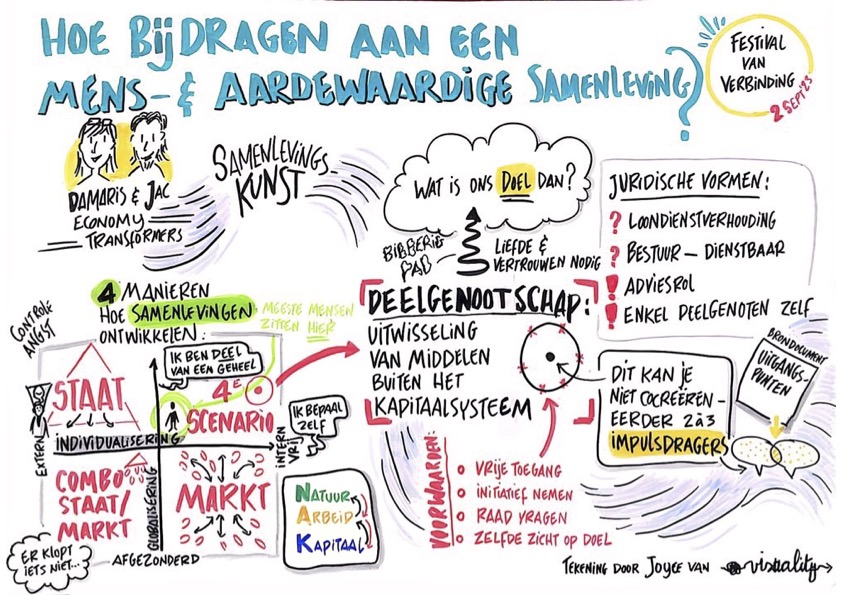 HOE BIJDRAGEN AAN EEN
MENS- & AARDEWAARDIGE SAMENLEVING?
FESTIVAL
VAN
VERBINDING
2 SEPT'23
DAMARIS & JAC
ECONOMY
TRANSFORMERS
SAMENLEVINGS
KUNST
WAT IS ONS DOEL DAN?
BIBBERIG
PAD
LIEFDE &
VERTROUWEN NODIG
JURIDISCHE VORMEN:
? LOONDIENSTVERHOUDING
? BESTUUR – DIENSTBAAR
! ADVIESROL
! ENKEL DEELGENOTEN ZELF
CONTROLE
ANGST
4 MANIEREN
HOE SAMENLEVINGEN
ONTWIKKELEN:
MEESTE MENSEN
ZITTEN HIER
IK BEN DEEL
VAN EEN GEHEEL
STAAT
4E
SCENARIO
IK BEPAAL
ZELF
EXTERN
INDIVIDUALISERING
INTERN
VRIJ
COMBO
STAAT/
MARKT
GLOBALISERING
MARKT
ER KLOPT
IETS NIET...
AFGEZONDERD
NATUUR
ARBEID
KAPITAAL
DEELGENOOTSCHAP:
UITWISSELING
VAN MIDDELEN
BUITEN HET
KAPITAALSYSTEEM
VOORWAARDEN:
VRIJE TOEGANG
INITIATIEF NEMEN
RAAD VRAGEN
ZELFDE ZICHT OP DOEL
DIT KAN JE
NIET COCREËREN –
EERDER 2 à 3
IMPULSDRAGERS
BRONDOCUMENT
UITGANGS-
PUNTEN
TEKENING DOOR JOYCE VAN visuality